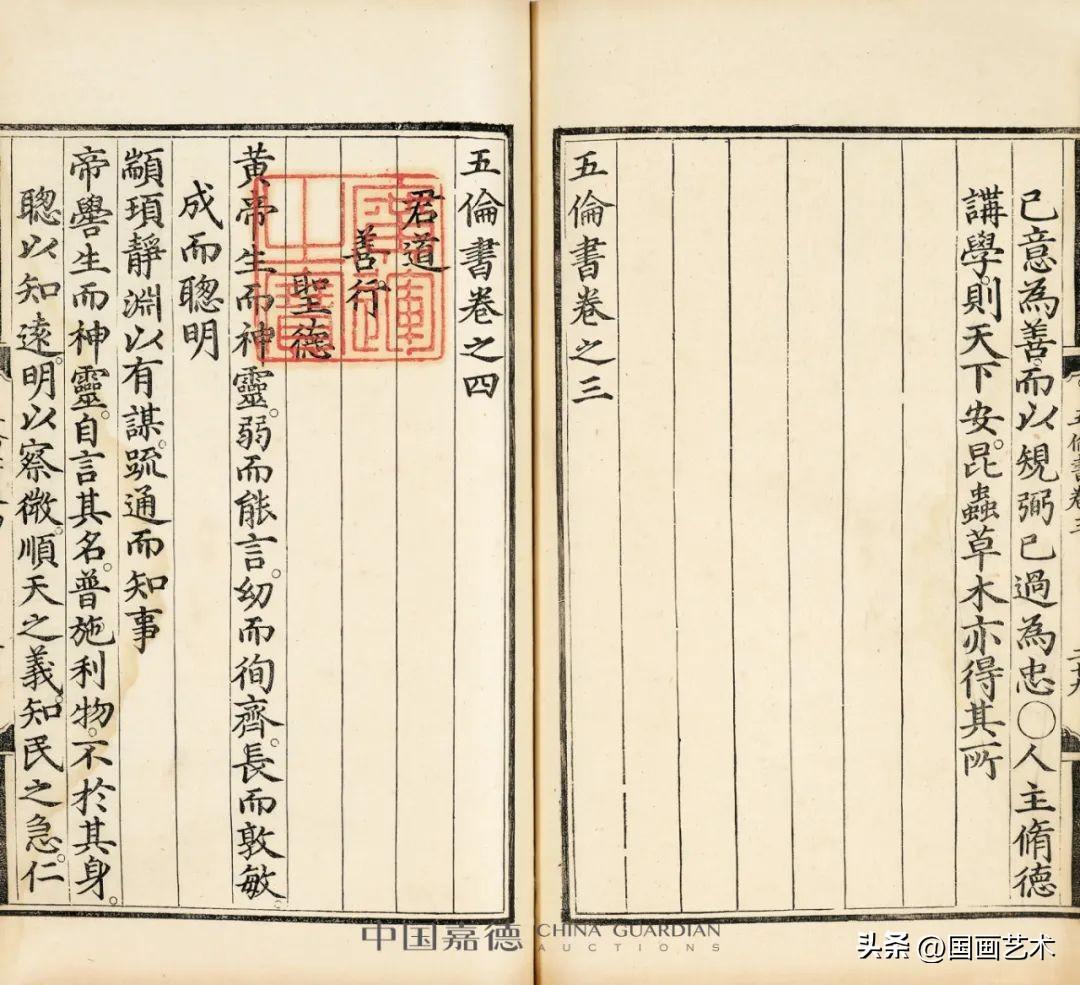 己意為善而以規弼己過為忠〇人主脩德
講學則天下安昆蟲草木亦得其所
五倫書卷之三
五倫書卷之四
君道
善行
聖德
黃帝生而神靈。弱而能言。幼而徇齊。長而敦敏。
成而聰明
顓頊靜淵以有謀。疏通而知事
帝嚳生而神靈。自言其名。普施利物。不於其身。
聰以知遠。明以察微。順天之義。知民之急。仁
五倫書卷三
廣運之寶
中国嘉德 CHINA GUARDIAN
AUCTIONS
头条 @国画艺术